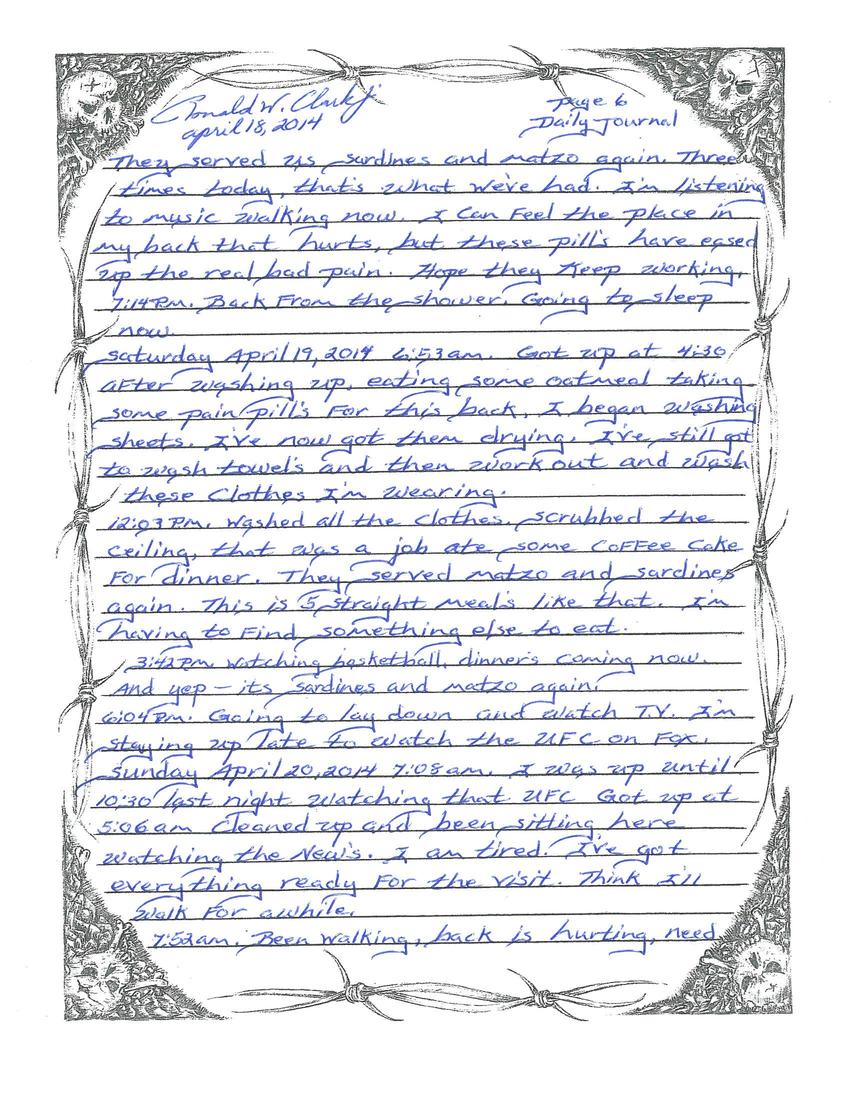 Ronald W. Clark jr
april 18, 2014
page 6
Daily Journal
They served us sardines and matzo again. Three
times today, that's what we've had. I'm listening
to music walking now. I can feel the place in
my back that hurts, but these pill's have eased
up the real bad pain. Hope they keep working.
7:14 P.M. Back From the shower. Going to sleep
now.
Saturday April 19, 2014 6:53am. Got up at 4:30
after washing up, eating some oatmeal taking
some pain pill's For this back, I began washing
sheets. I've now got them drying. I've still got
to wash towel's and then work out and wash
these Clothes I'm wearing.
12:03 P.M. Washed all the clothes. scrubbed the
ceiling, that was a job ate some Coffee Cake
For dinner. They served matzo and sardines
again. This is 5 straight meal's like that. I'm
having to Find something else to eat.
3:42 P.M. Watching basketball, dinner's coming now.
And yep - its sardines and matzo again.
6:04 P.M. Going to lay down and watch T.V. I'm
staying up late to watch the UFC on Fox.
Sunday April 20, 2014 7:08am. I was up until
10:30 last night watching that UFC Got up at
5:06am Cleaned up and been sitting here
watching the New's. I am tired. I've got
everything ready For the visit. Think I'll
walk For awhile.
7:52am. Been walking, back is hurting, need